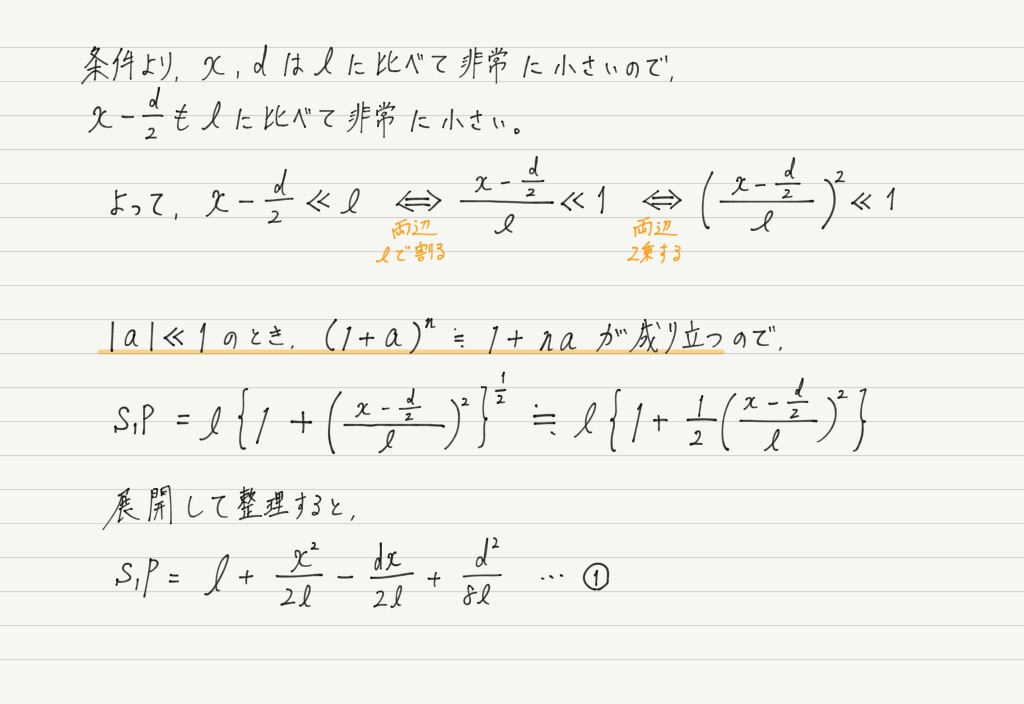 条件より, x, d は l に比べて非常に小さいので,
x - d/2 も l に比べて非常に小さい。
よって, x - d/2 ≪ l ⟺ (x - d/2)/l ≪ 1 ⟺ ((x - d/2)/l)² ≪ 1
両辺 両辺
lで割る 2乗する
|a| ≪ 1 のとき, (1+a)ⁿ ≒ 1+na が成り立つので,
S₁P = l{1 + ((x - d/2)/l)²}^(1/2) ≒ l{1 + 1/2((x - d/2)/l)²}
展開して整理すると,
S₁P = l + x²/2l - dx/2l + d²/8l … ①